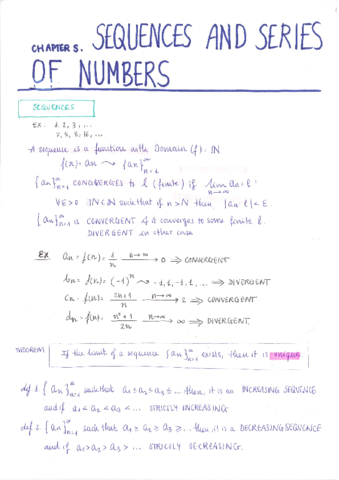 CHAPTER 5. SEQUENCES AND SERIES
OF NUMBERS
SEQUENCES
EX. 1, 2, 3, ...
2, 4, 8, 16, ...
A sequence is a function with Domain (f): IN
f(n) = an ⤳ {an}∞n=1
{an}∞n=1 CONVERGES to l (finite) if lim n→∞ an = l
∀ε>0 ∃N∈IN such that if n>N then |an-l|<ε.
{an}∞n=1 is CONVERGENT if it converges to some finite l.
DIVERGENT in other case
EX an = f(n) = 1/n n→∞ → 0 ⇒ CONVERGENT
bn = f(n) = (-1)^n ⤳ -1, 1, -1, 1, ... ⇒ DIVERGENT
cn = f(n) = 2n+1/n n→∞ → 2 ⇒ CONVERGENT
dn = f(n) = n²+1/2n n→∞ → ∞ ⇒ DIVERGENT.
THEOREM If the limit of a sequence {an}∞n=1 exists, then it is unique
def 1. {an}∞n=1 such that a1 ≤ a2 ≤ a3 ≤ ... then, it is an INCREASING SEQUENCE
and if a1 < a2 < a3 < ... STRICTLY INCREASING
def 2. {an}∞n=1 such that a1 ≥ a2 ≥ a3 ≥ ... then, it is a DECREASING SEQUENCE
and if a1 > a2 > a3 > ... STRICTLY DECREASING.